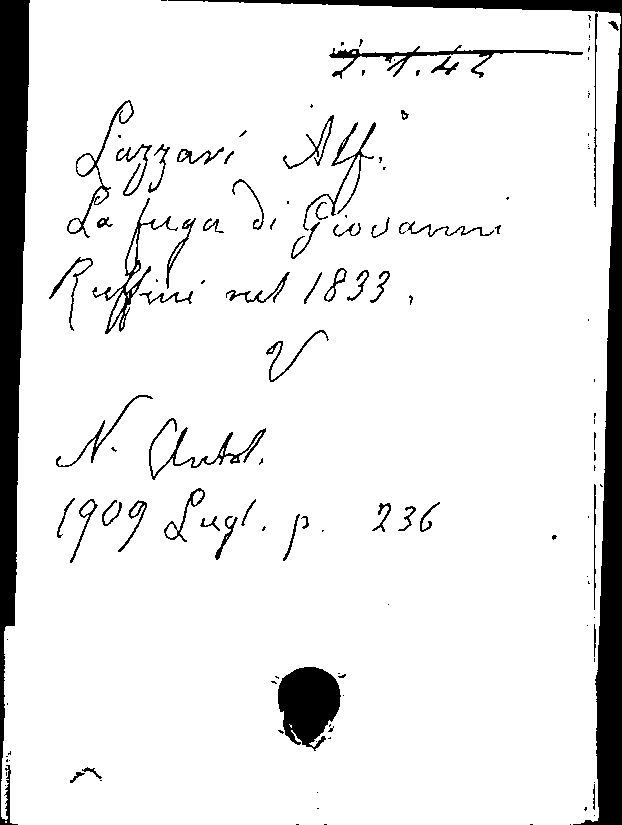 2.1.42
Lazzari Alf.º
La fuga di Giovanni
Ruffini nel 1833.
V
N. Antol.
1909 Lugl. p. 236